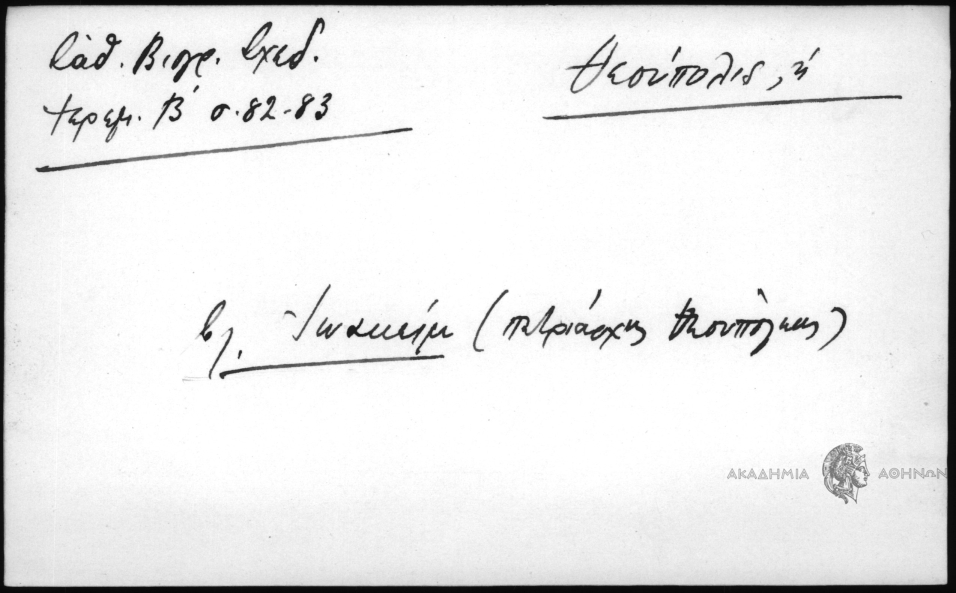 Σάθ. Βιογρ. Σχεδ.
Ἱερεμ. Β΄ σ. 82-83
Θεούπολις, ἡ
βλ. Ἰωακείμ (πατριάρχης Θεουπόλεως)
ΑΚΑΔΗΜΙΑ ΑΘΗΝΩΝ